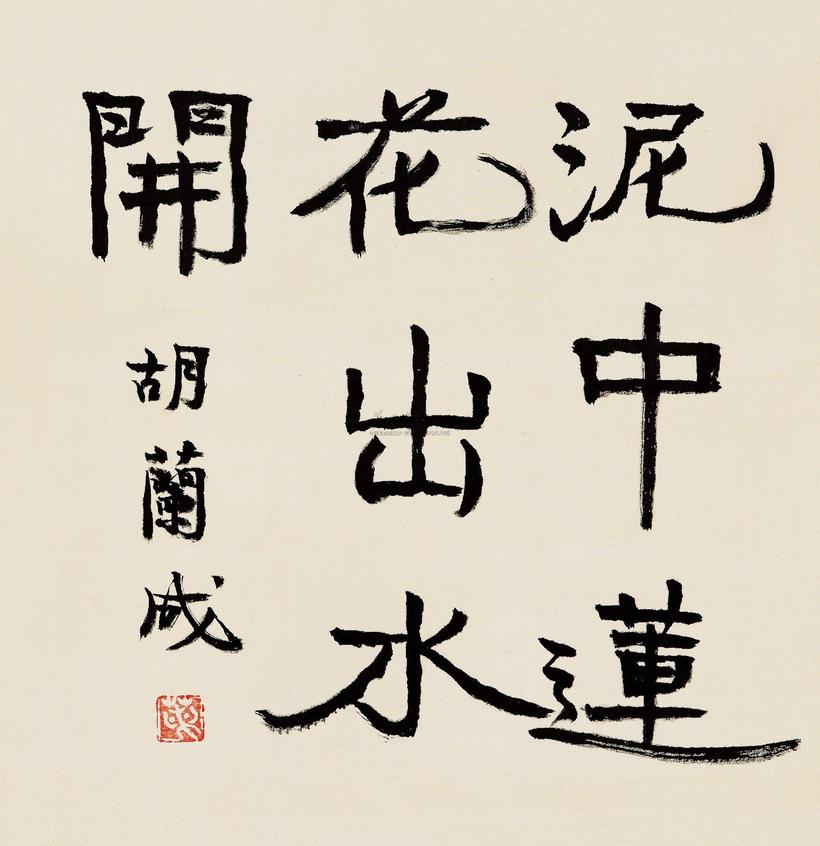 泥中蓮
花出水
開
胡蘭成